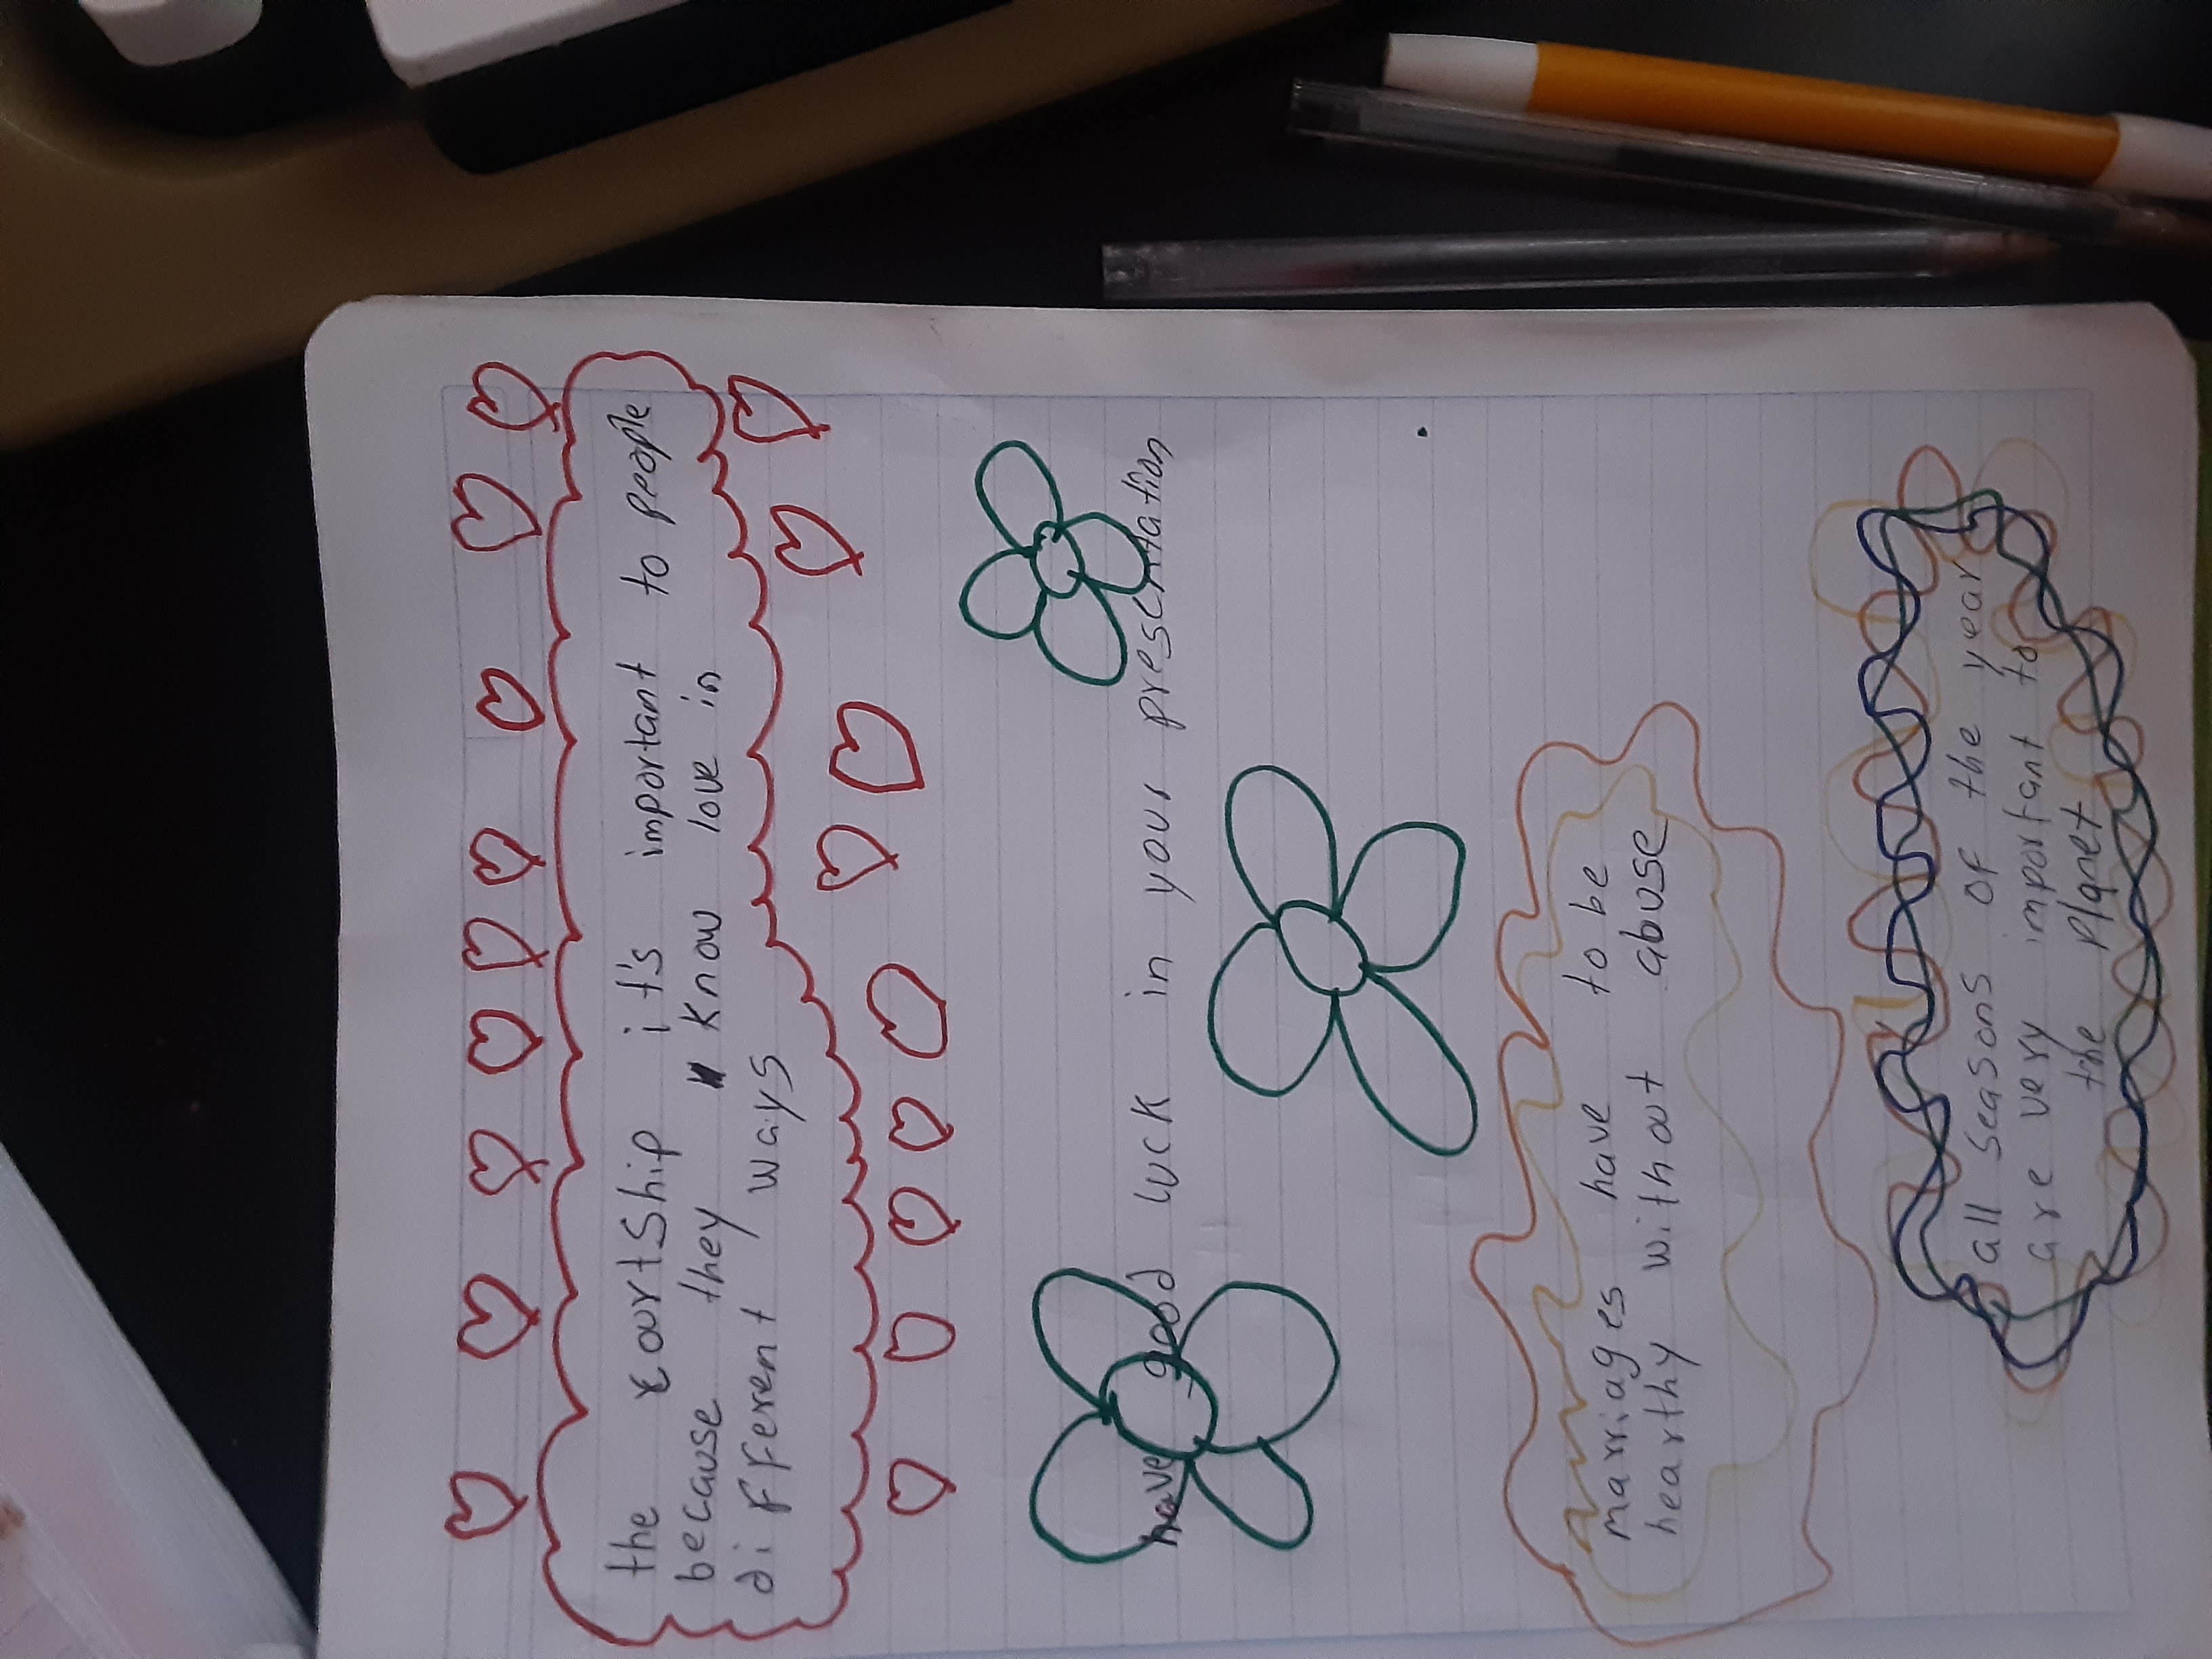 the courtship it's important to people
because they know love in
different ways
have good luck in your presentation
marriages have to be
hearthy without abuse
all seasons of the year
are very important to
the planet